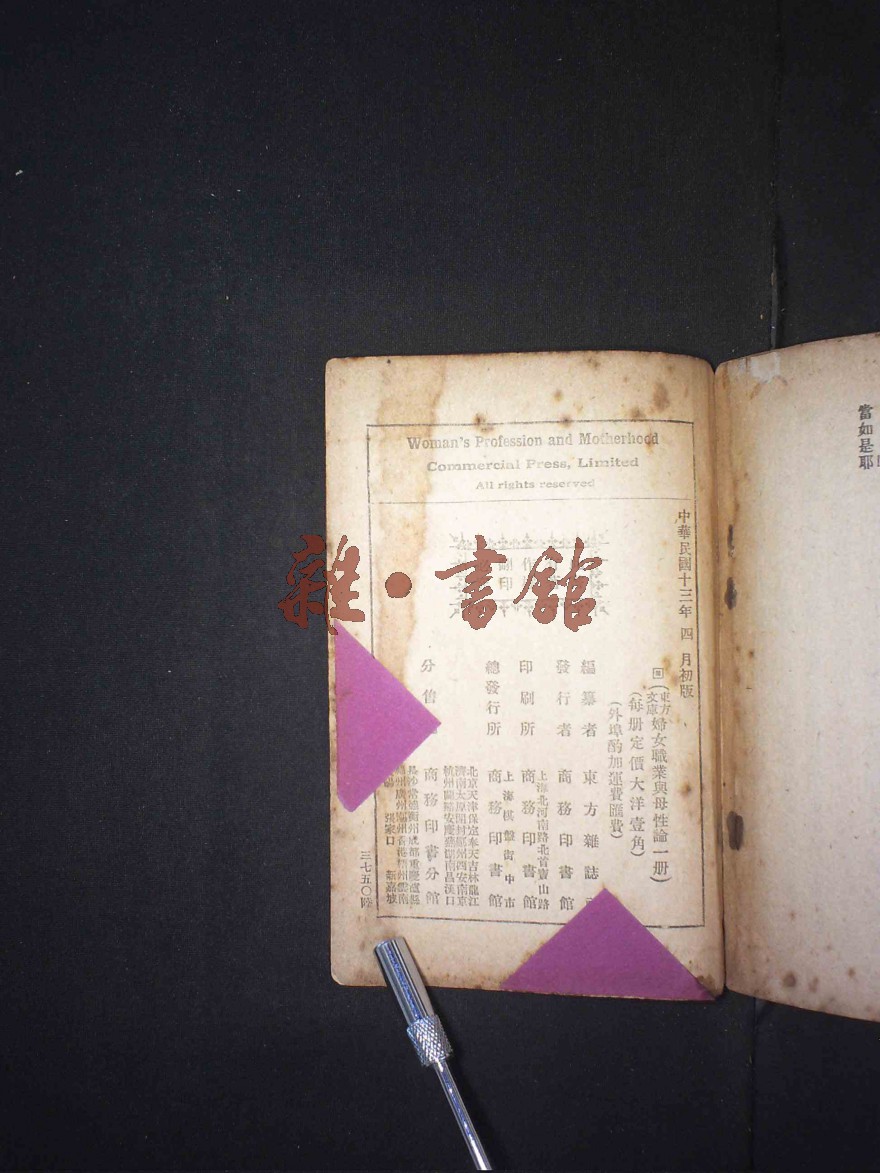 當如是耶
Woman's Profession and Motherhood
Commercial Press, Limited
All rights reserved
中華民國十三年 四 月初版
(東方文庫 婦女職業與母性論一册)
(每册定價大洋壹角)
(外埠酌加運費匯費)
編纂者 東方雜誌
發行者 商務印書館
上海北河南路北首寶山路
印刷所 商務印書館
上海棋盤街中市
總發行所 商務印書館
北京天津保定奉天吉林龍江
濟南太原開封鄭州西安南京
杭州蘭谿安慶蕪湖南昌漢口
分售 商務印書分館
長沙常德衡州成都重慶瀘縣
福州廣州潮州香港梧州雲南
張家口 新嘉坡
三七五〇陸
雜·書館